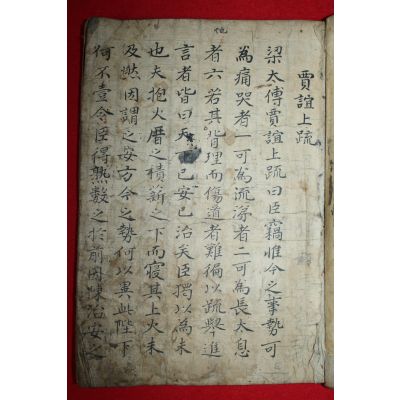 賈誼上疏
梁太傅賈誼上疏曰臣竊惟今之事勢可
為痛哭者一可為流涕者二可為長太息
者六若其背理而傷道者難徧以疏舉進
言者皆曰天下已安已治矣臣獨以為未
也夫抱火厝之積薪之下而寢其上火未
及燃因謂之安方今之勢何以異此陛下
何不壹令臣得熟数之於前因陳治安之